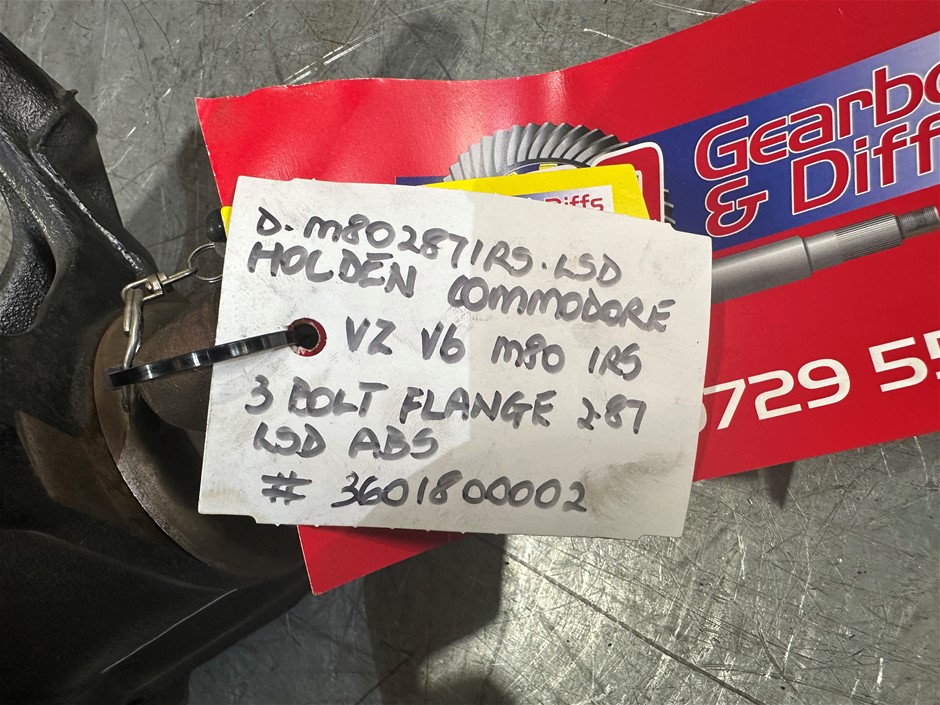 Gearbo
& Diff
Diffs
D. M80287IRS. LSD
HOLDEN COMMODORE
VZ V6 M80 IRS
3 BOLT FLANGE 2.87
LSD ABS
# 3601800002
729 55